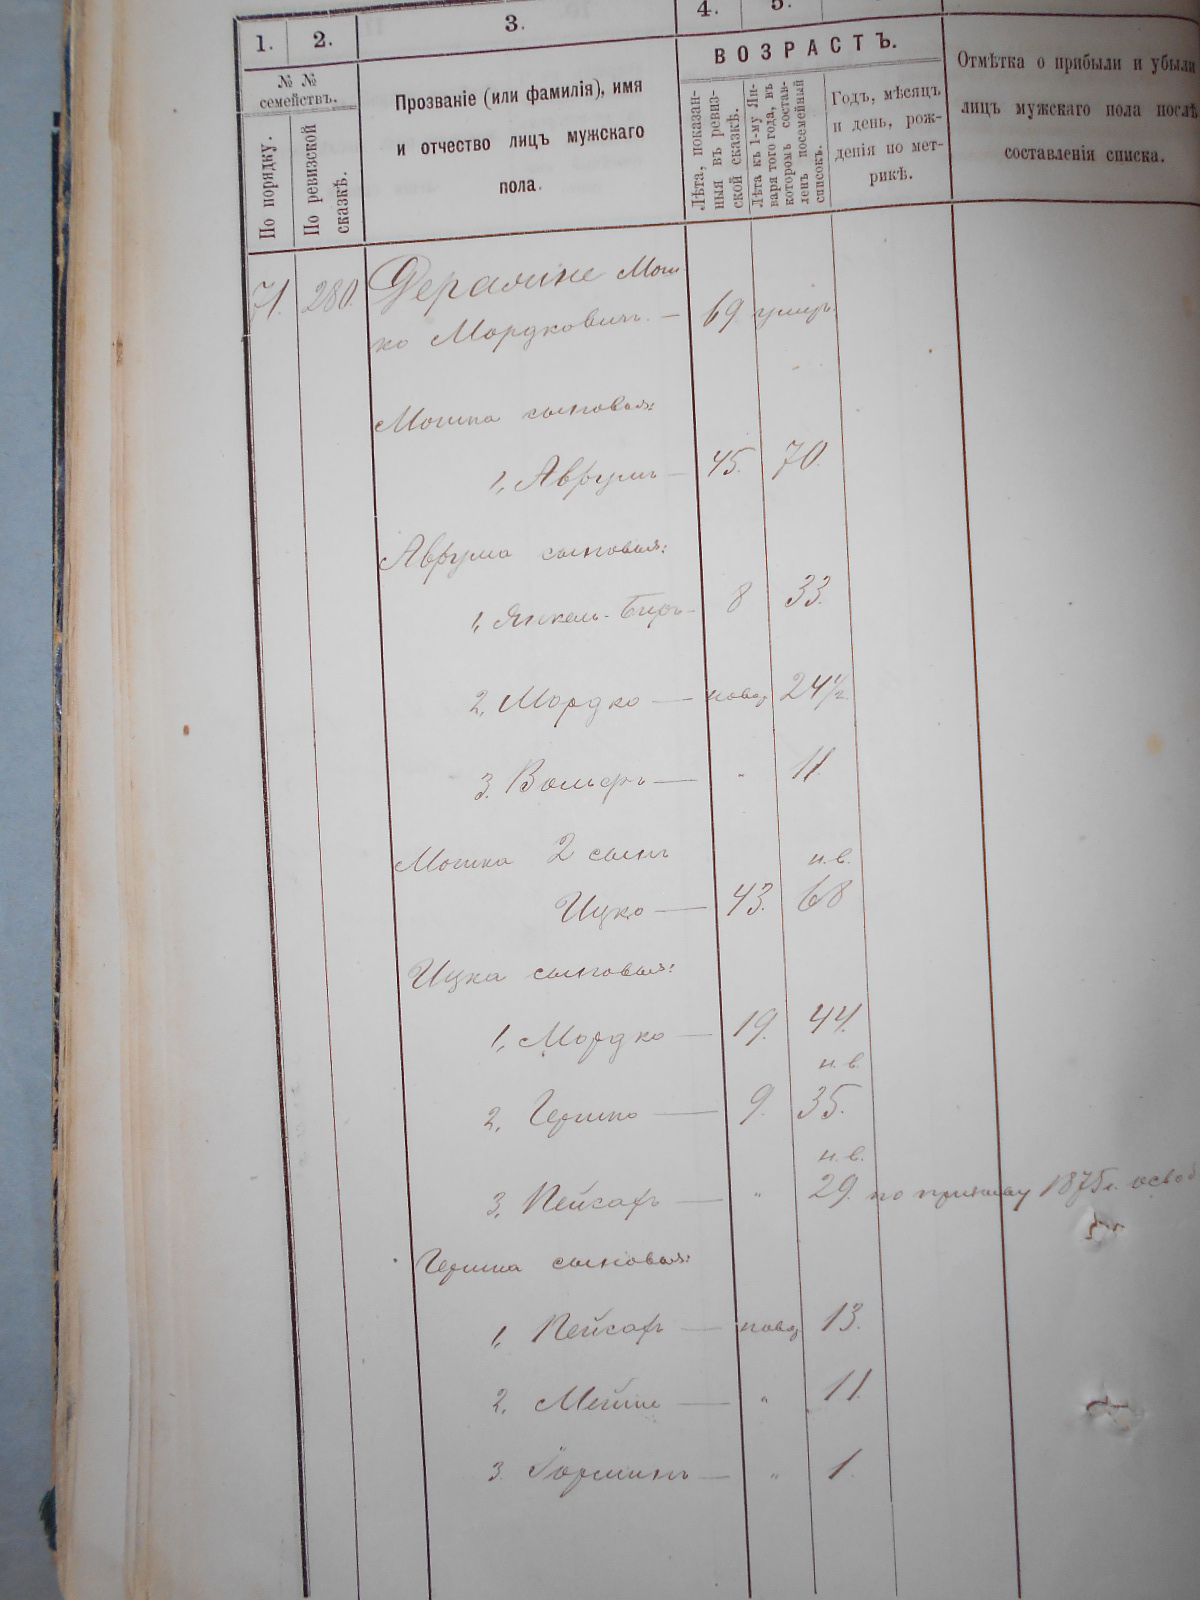 1. 2. 3. 4. 5.
№ №
семействъ.
По порядку.
По ревизской
сказкѣ.
Прозваніе (или фамилія), имя
и отчество лицъ мужскаго
пола.
ВОЗРАСТЪ.
Лѣта, показан-
ныя въ ревиз-
ской сказкѣ.
Лѣта къ 1-му Ян-
варя того года, въ
которомъ состав-
ленъ посемейный
списокъ.
Годъ, мѣсяцъ
и день, рож-
денія по мет-
рикѣ.
Отмѣтка о прибыли и убыли
лицъ мужскаго пола послѣ
составленія списка.
71. 280. Мош-
ко Мордковичъ. — 69 умеръ.
Мошка сыновья:
1, Аврумъ — 45. 70.
Аврума сыновья:
1, Янкель-Беръ — 8 33.
2, Мордко — новор 24 1/2.
3. Вольфъ — " 11.
Мошка 2 сынъ н.в.
Ицко — 43. 68
Ицка сыновья:
1, Мордко — 19. 44.
н.в.
2, Гершко — 9. 35.
н.в.
3, Пейсахъ — " 29. по призыву 1875 г. освоб
Гершка сыновья:
1, Пейсахъ — новор 13.
2, — " 11.
3. — " 1.